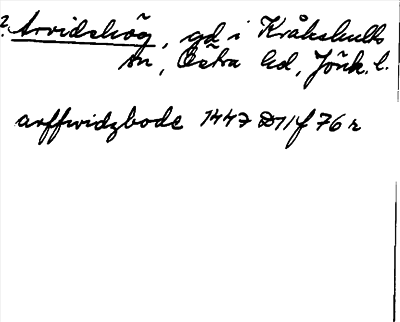 ? Arvidshög, gd i Kråkshults
sn, Östra hd, Jönk. l.
arffwidzbode 1447 D 11 f 76 r